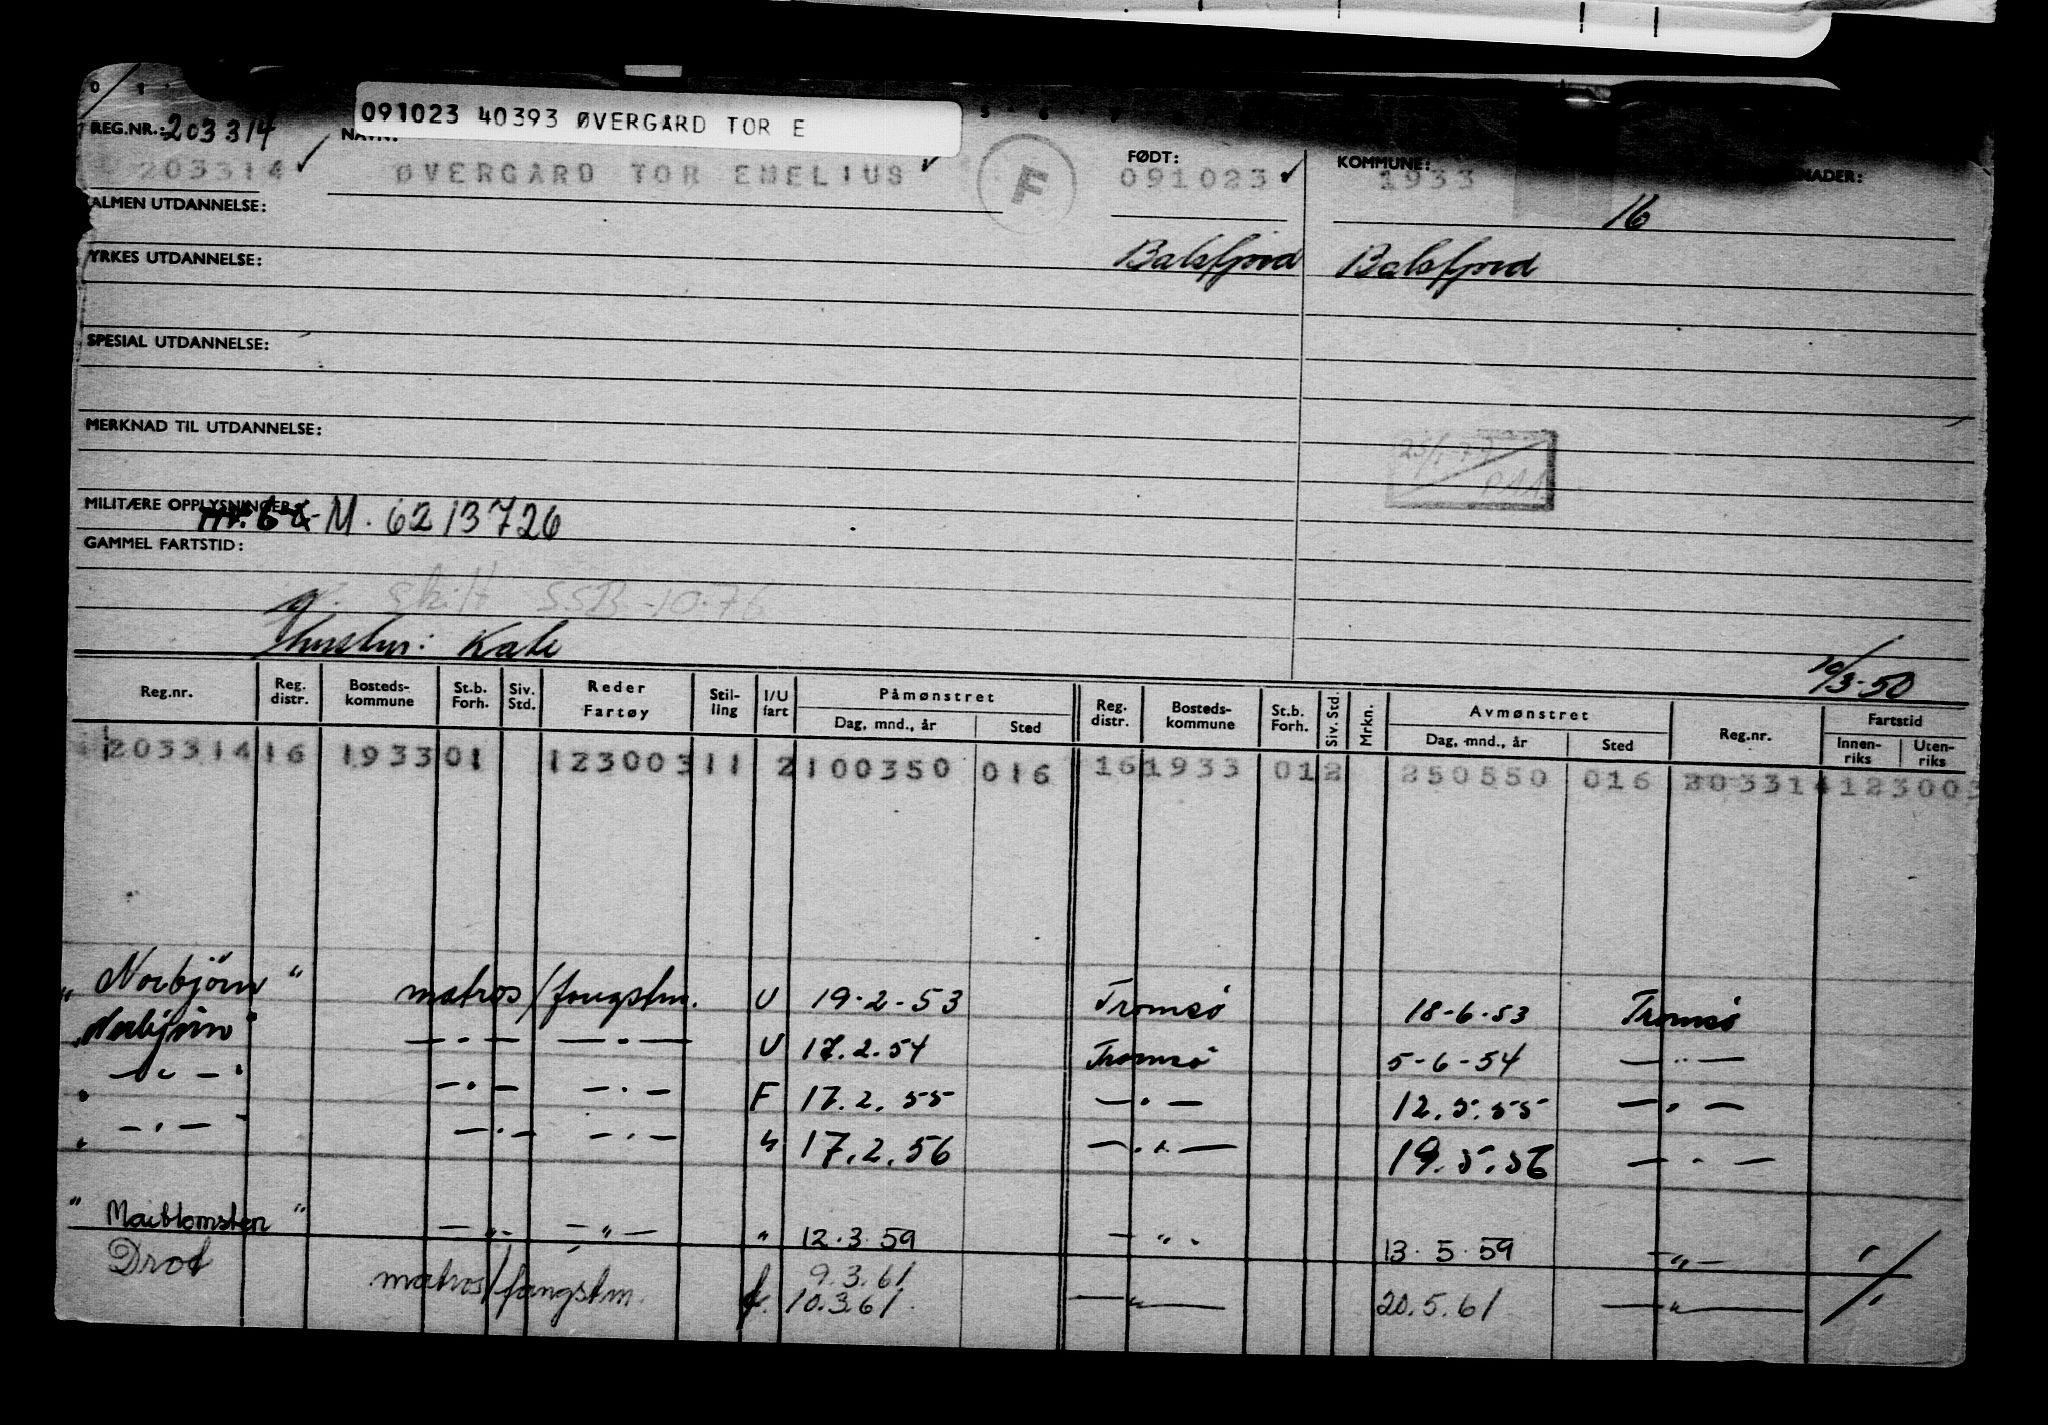 091023 40393 ØVERGÅRD TOR E
REG.NR.: 203314
203314 ✓ ØVERGÅRD TOR EMELIUS ✓ F FØDT: 091023 ✓ KOMMUNE: 1933
ALMEN UTDANNELSE: 16
YRKES UTDANNELSE: Balsfjord Balsfjord
SPESIAL UTDANNELSE:
MERKNAD TIL UTDANNELSE:
MILITÆRE OPPLYSNINGER:
M. 6213726
GAMMEL FARTSTID:
g. Skilt SSB-10-76
Hustru: Kate
10/3-50
Reg.nr. Reg. distr. Bosteds-kommune St.b. Forh. Siv. Std. Reder Fartøy Stil-ling I/U fart Påmønstret Dag, mnd., år Sted Reg. distr. Bosteds-kommune St.b. Forh. Siv. Std. Mrkn. Avmønstret Dag, mnd., år Sted Reg.nr. Fartstid Innen-riks Uten-riks
203314 16 1933 01 123003 11 2 100350 016 16 1933 01 2 250550 016 203314 123003
" Norbjörn " matros/fangstm. U 19-2-53 Tromsø 18-6-53 Tromsø
" Norbjörn " —·— —·— U 17.2.54 Tromsø 5-6-54 —"—
" —"— " —·— —·— F 17.2.55 —·— 12.5.55 —·—
" —·— " —·— —·— 17.2.56 —·— 19.5.56 —·—
" Maiblomsten " —"— —"— " 12.3.59 —"— 13.5.59 —"— "
Drot 9.3.61
matros/fangstm. f. 10.3.61. —"— 20.5.61 —"— "